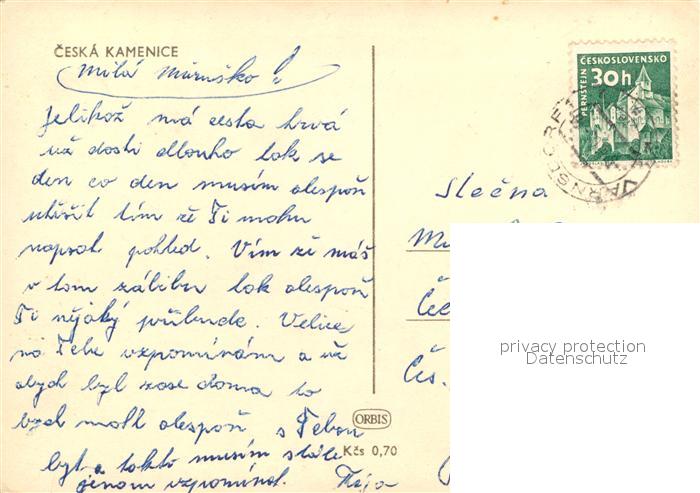 ČESKÁ KAMENICE
Milá Miruško!
Jelikož má cesta trvá
už dosti dlouho tak se
den co den musím alespoň
utěšit tím že Ti mohu
napsat pohled. Vím že máš
v tom zálibu tak alespoň
Ti nějaký přibude. Velice
na Tebe vzpomínám a už
abych byl zase doma to
bych mohl alespoň s Tebou
být a takto musím stále
jenom vzpomínat.
ORBIS
Kčs 0,70
ČESKOSLOVENSKO
30h
PERNŠTEJN
VARNSDORF
Slečna
Čes.
privacy protection
Datenschutz